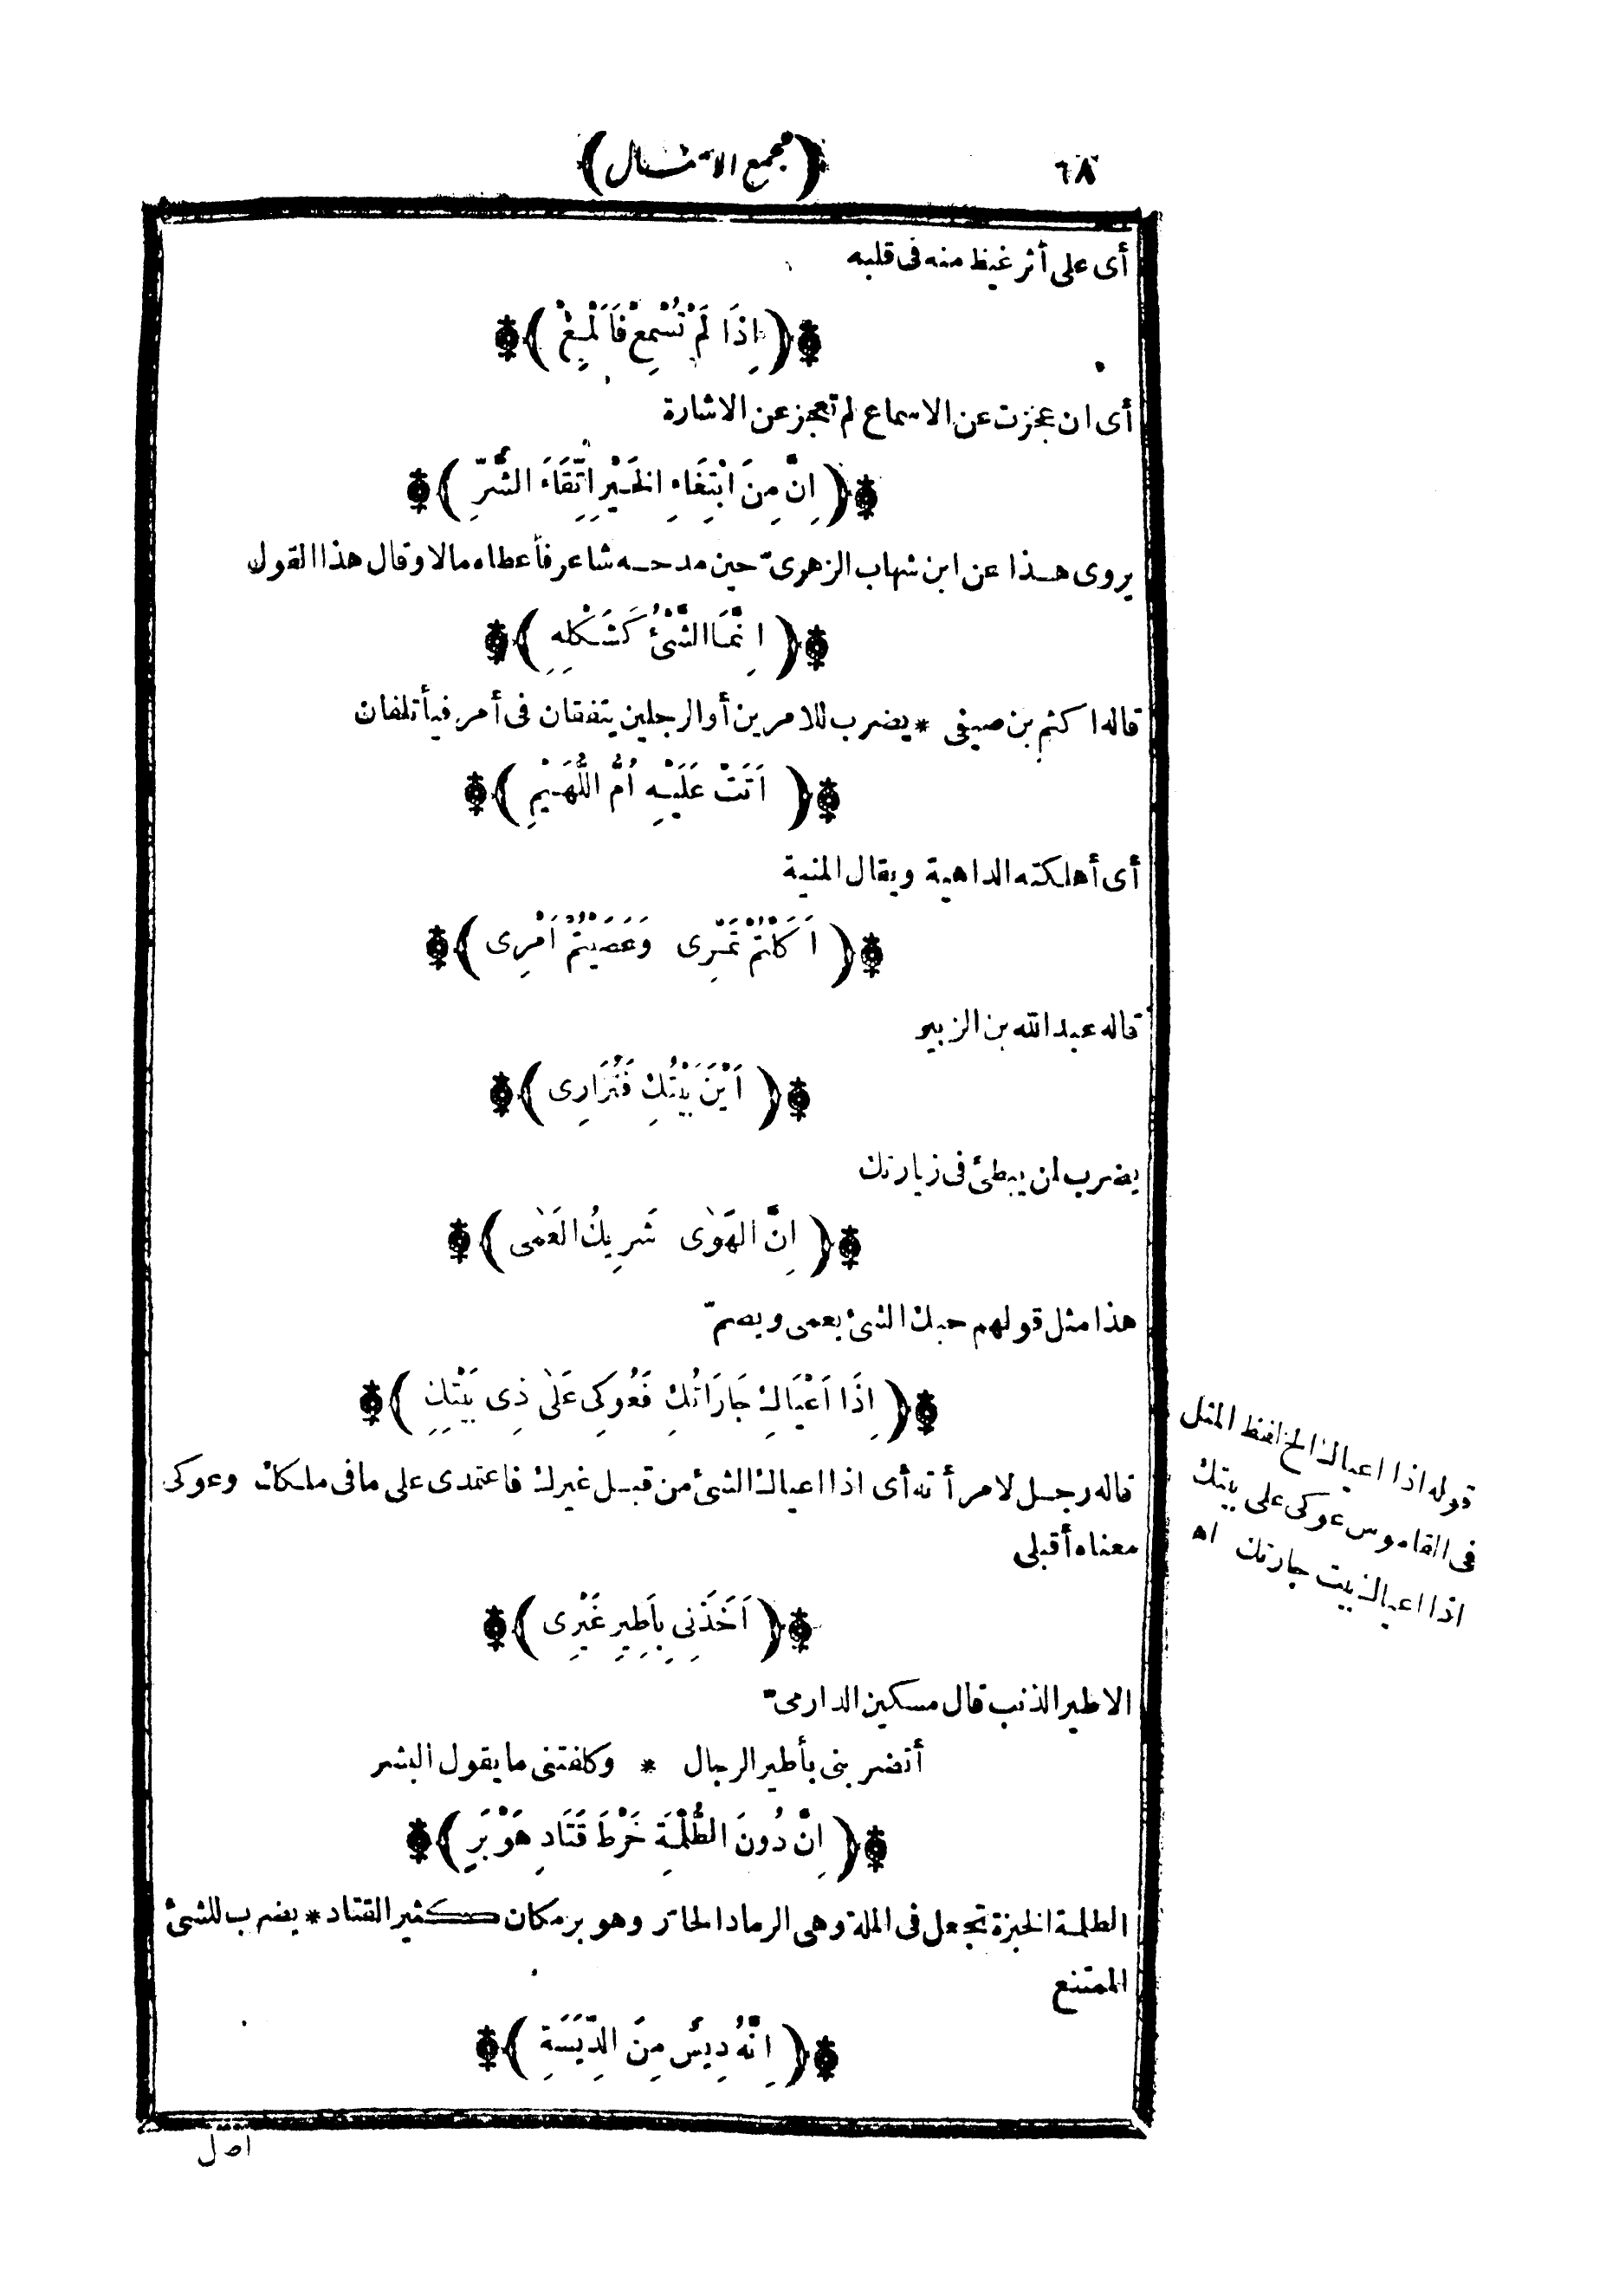 ٦٨
﴿مجمع الامثال﴾
أى على أثر غيظ منه فى قلبه
﴿ اِذَا لَمْ تُسْمِعْ فَأَلْمِعْ ﴾
أى ان عجزت عن الاسماع لم تعجز عن الاشارة
﴿ اِنَّ مِنَ ابْتِغَاءِ الخَيْرِ اتِّقَاءَ الشَّرِّ ﴾
يروى هذا عن ابن شهاب الزهرىّ حين مدحه شاعر فأعطاه مالا وقال هذا القول
﴿ اِنَّمَا الشَّىْءُ كَشَكْلِهِ ﴾
قاله اكثم بن صيفى * يضرب للامرين أو الرجلين يتفقان فى أمر فيأتلفان
﴿ اَتَتْ عَلَيْهِ اُمُّ اللُّهَيْمِ ﴾
أى أهلكته الداهية ويقال المنية
﴿ اَكَلْتُمْ تَمْرِى وَعَصَيْتُمْ اَمْرِى ﴾
قاله عبد الله بن الزبير
﴿ اَيْنَ بَيْتُكِ فَتُزَارِى ﴾
يضرب لمن يبطئ فى زيارتك
﴿ اِنَّ الهَوٰى شَرِيكُ العَمٰى ﴾
هذا مثل قولهم حبك الشئ يعمى ويصمّ
﴿ اِذَا اَعْيَاكِ جَارَاتُكِ فَعُوكِى عَلٰى ذِى بَيْتِكِ ﴾
قاله رجل لامرأته أى اذا اعياك الشئ من قبل غيرك فاعتمدى على ما فى ملكك وعوكى
معناه أقبلى
﴿ اَخَذَنِى بِأَطِيرِ غَيْرِى ﴾
الاطير الذنب قال مسكين الدارمىّ
أتضربنى بأطير الرجال * وكلفتنى ما يقول البشر
﴿ اِنَّ دُونَ الطُّلْمَةِ خَرْطَ قَتَادِ هَوْبَرٍ ﴾
الطلمة الخبزة تجعل فى الملة وهى الرماد الحارّ وهوبر مكان كثير القتاد * يضرب للشئ
الممتنع
﴿ اِنَّهُ دِيسٌ مِنَ الدِّيَسَةِ ﴾
اصل
قوله اذا اعياك الخ لفظ المثل
فى القاموس عوكى على بيتك
اذا اعياك بيت جارتك اه